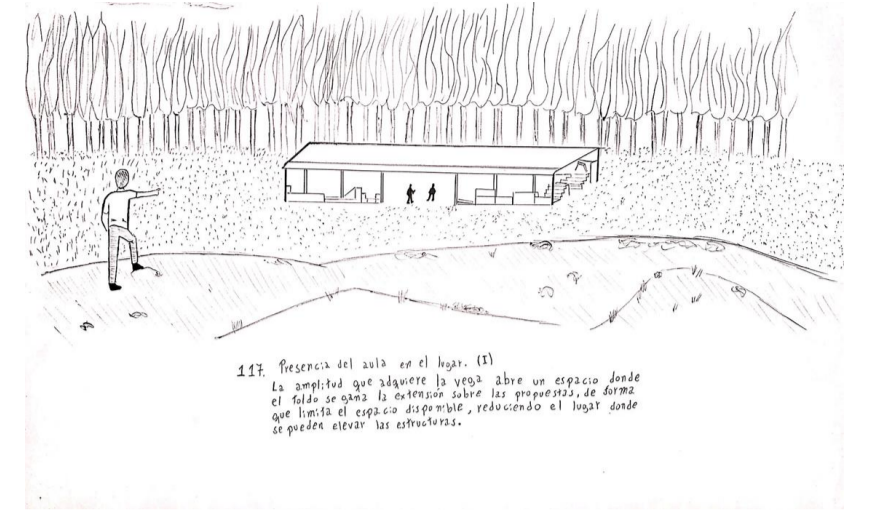 117. Presencia del aula en el lugar. (I)
La amplitud que adquiere la vega abre un espacio donde
el toldo se gana la extensión sobre las propuestas, de forma
que limita el espacio disponible, reduciendo el lugar donde
se pueden elevar las estructuras.